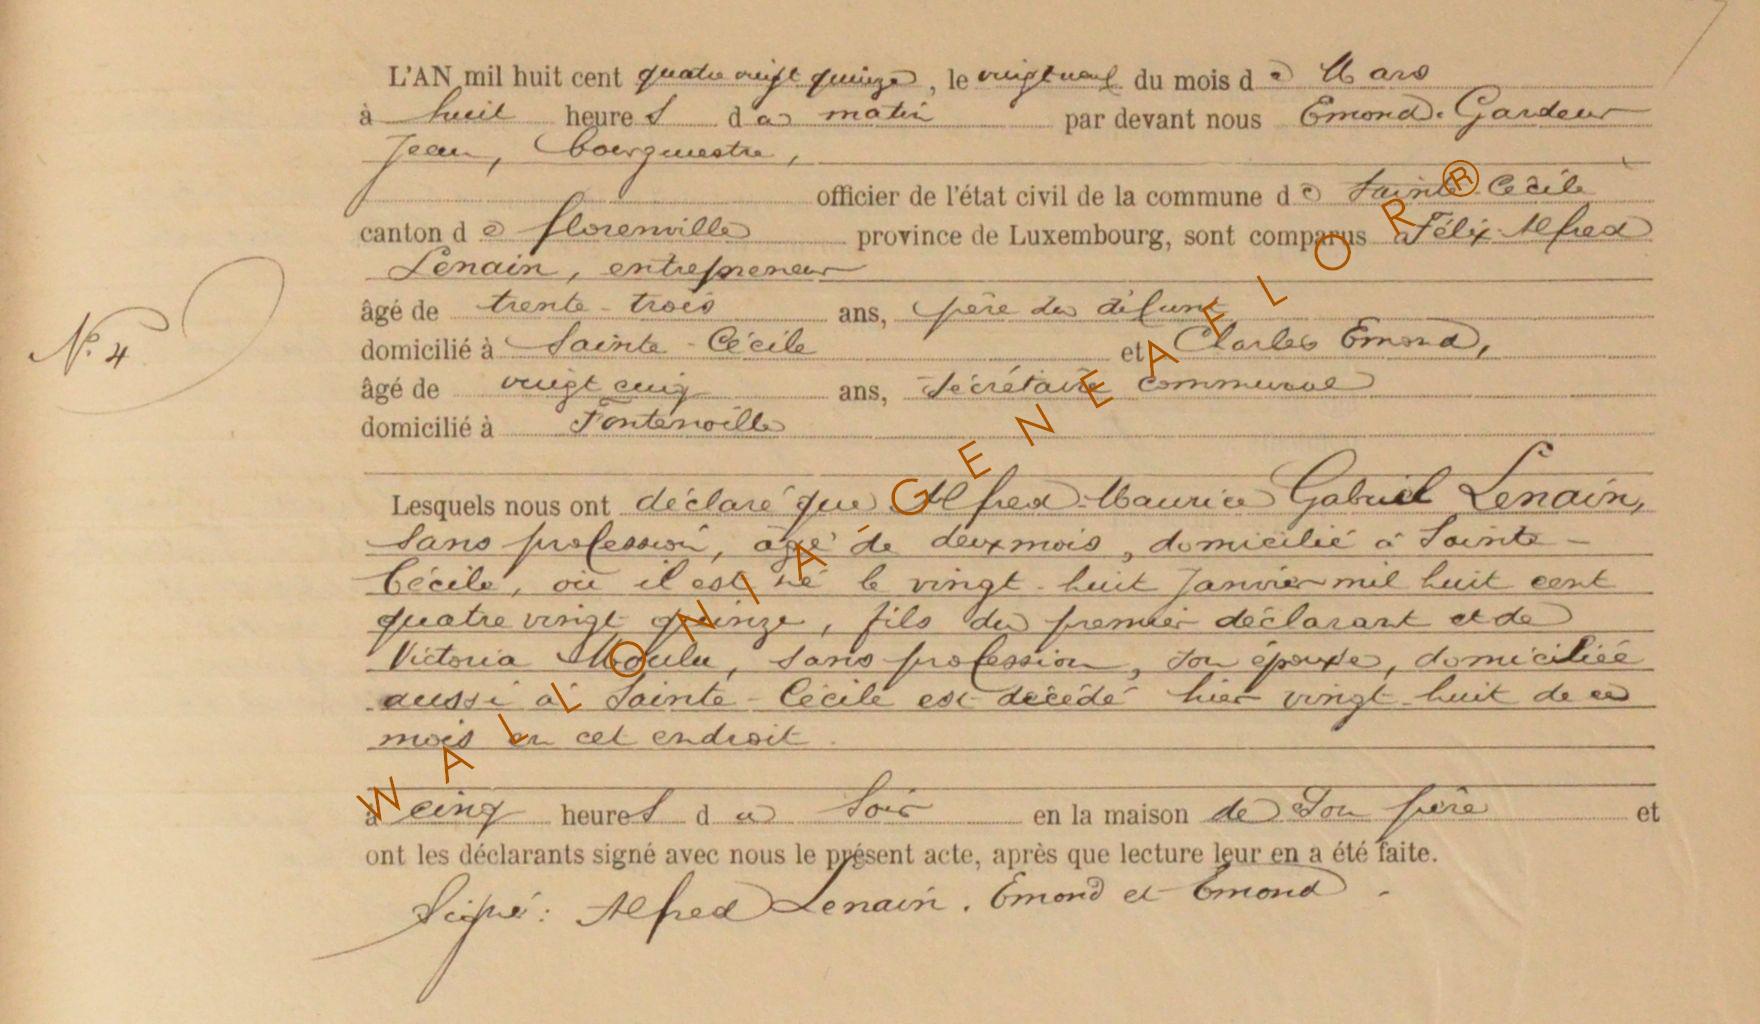 L'AN mil huit cent quatre vingt quinze, le vingt neuf du mois de Mars
à huit heures du matin par devant nous Emond-Gardeur
Jean, bourgmestre,
officier de l'état civil de la commune de Sainte Cécile
canton de Florenville province de Luxembourg, sont comparus Félix-Alfred
Lenain, entrepreneur
âgé de trente-trois ans, père du défunt
N.° 4
domicilié à Sainte-Cécile et Charles Emond,
âgé de vingt cinq ans, secrétaire communal
domicilié à Fontenoille
Lesquels nous ont déclaré que Alfred-Maurice Gabriel Lenain,
sans profession, âgé de deux mois, domicilié à Sainte-
Cécile, où il est né le vingt-huit Janvier mil huit cent
quatre vingt quinze, fils du premier déclarant et de
Victoria Moulu, sans profession, son épouse, domiciliée
aussi à Sainte-Cécile est décédé hier vingt-huit de ce
mois en cet endroit.
à cinq heures du soir en la maison de son père et
ont les déclarants signé avec nous le présent acte, après que lecture leur en a été faite.
Signé: Alfred Lenain. Emond et Emond.
WALLONIA GENEAFLOR®